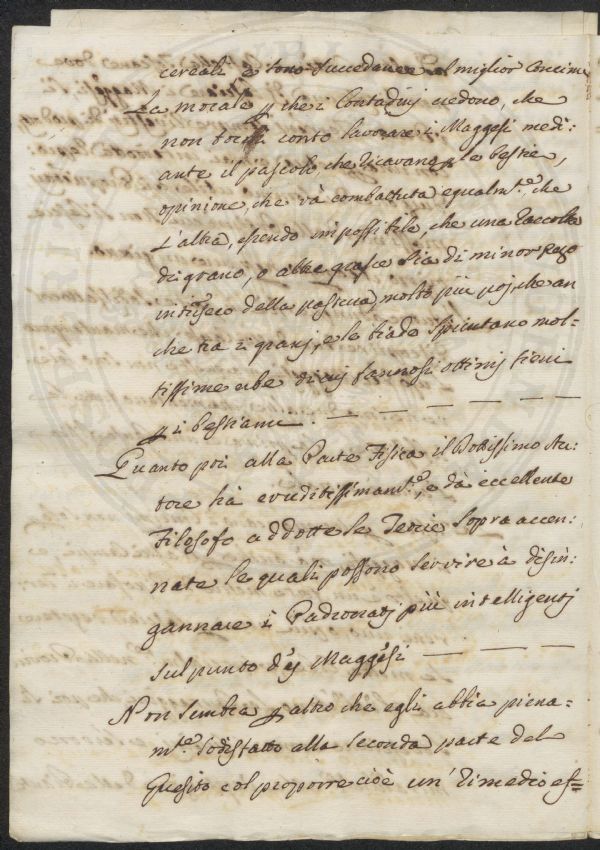 cereali e sono succedanee al miglior concime
La morale p che i Contadinj credono, che
non torni conto lavorare i Maggesi medi:
ante il pascolo, che ricavano p le bestie,
opinione, che và combattuta equalm.te che
l'altra, essendo impossibile, che una raccolta
di grano, o altre grasce sia di minor pregio
intrinseco della pastura, molto più poi, che an
che tra i granj, e le biade spuntano mol-
tissime erbe di cui fannosi ottimj fieni
p i bestiami. — — — — — —
Quanto poi alla Parte Fisica il Dottissimo Au-
tore hà eruditissimam.te, e dà eccellente
Filosofo addotte le Teorie sopra accen:
nate le quali possono servire à disin:
gannare i Padronati più intelligentj
sul punto d'ej Maggesi — — — —
Non sembra p altro che egli abbia piena=
m.te sodisfatto alla seconda parte del
Quesito col proporre cioè un' rimedio ef=